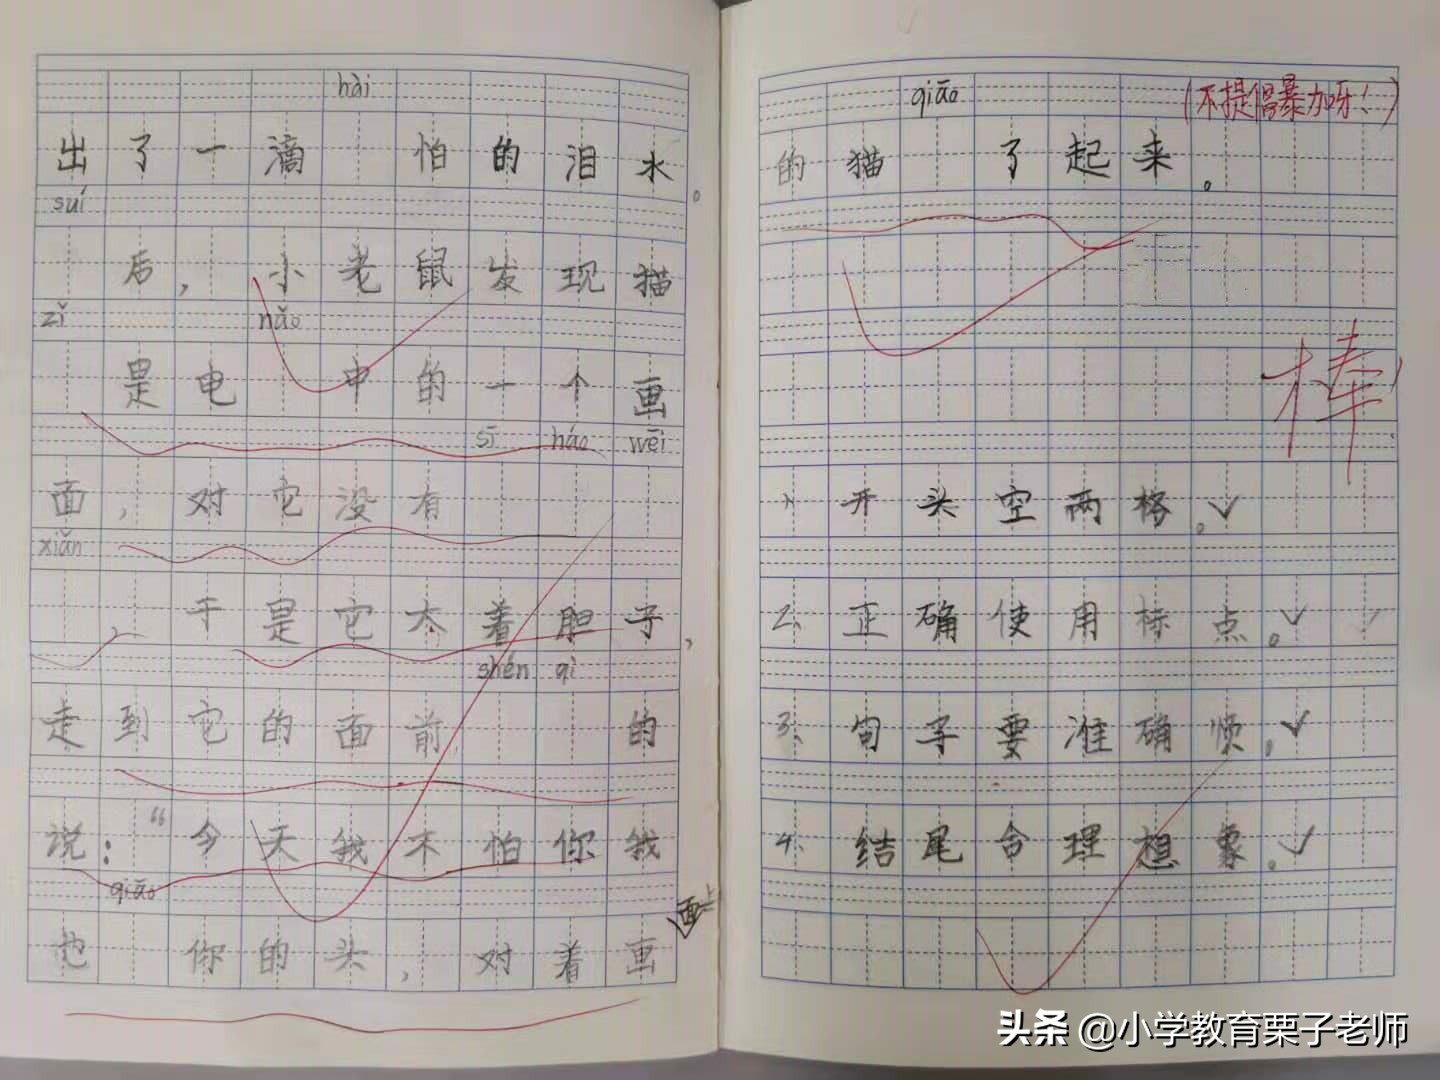 hài
出了一滴 怕的泪水。
suí
后，小老鼠发现猫
zǐ nǎo
是电 中的一个画
sī háo wēi
面，对它没有
xiǎn
，于是它大着胆子，
shén qì
走到它的面前 的
说：“今天我不怕你我
qiāo
也 你的头，对着画
面上
qiāo
(不提倡暴力呀！)
的猫 了起来。
棒！
1、开头空两格。✓
2、正确使用标点。✓
3、句子要准确顺。✓
4、结尾合理想象。✓
头条 @小学教育栗子老师